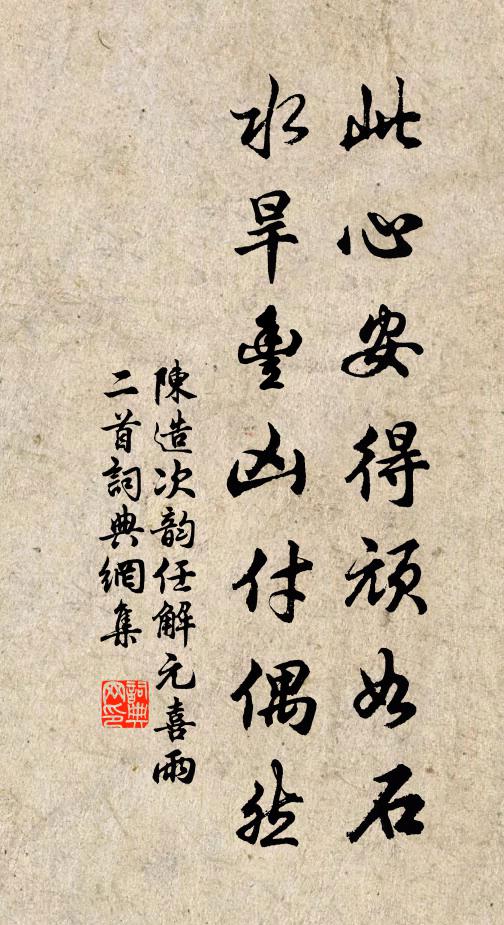 此心安得頑如石
水旱豐凶付偶然
陳造次韵任解元喜雨
二首詞典網集
詞典
网印